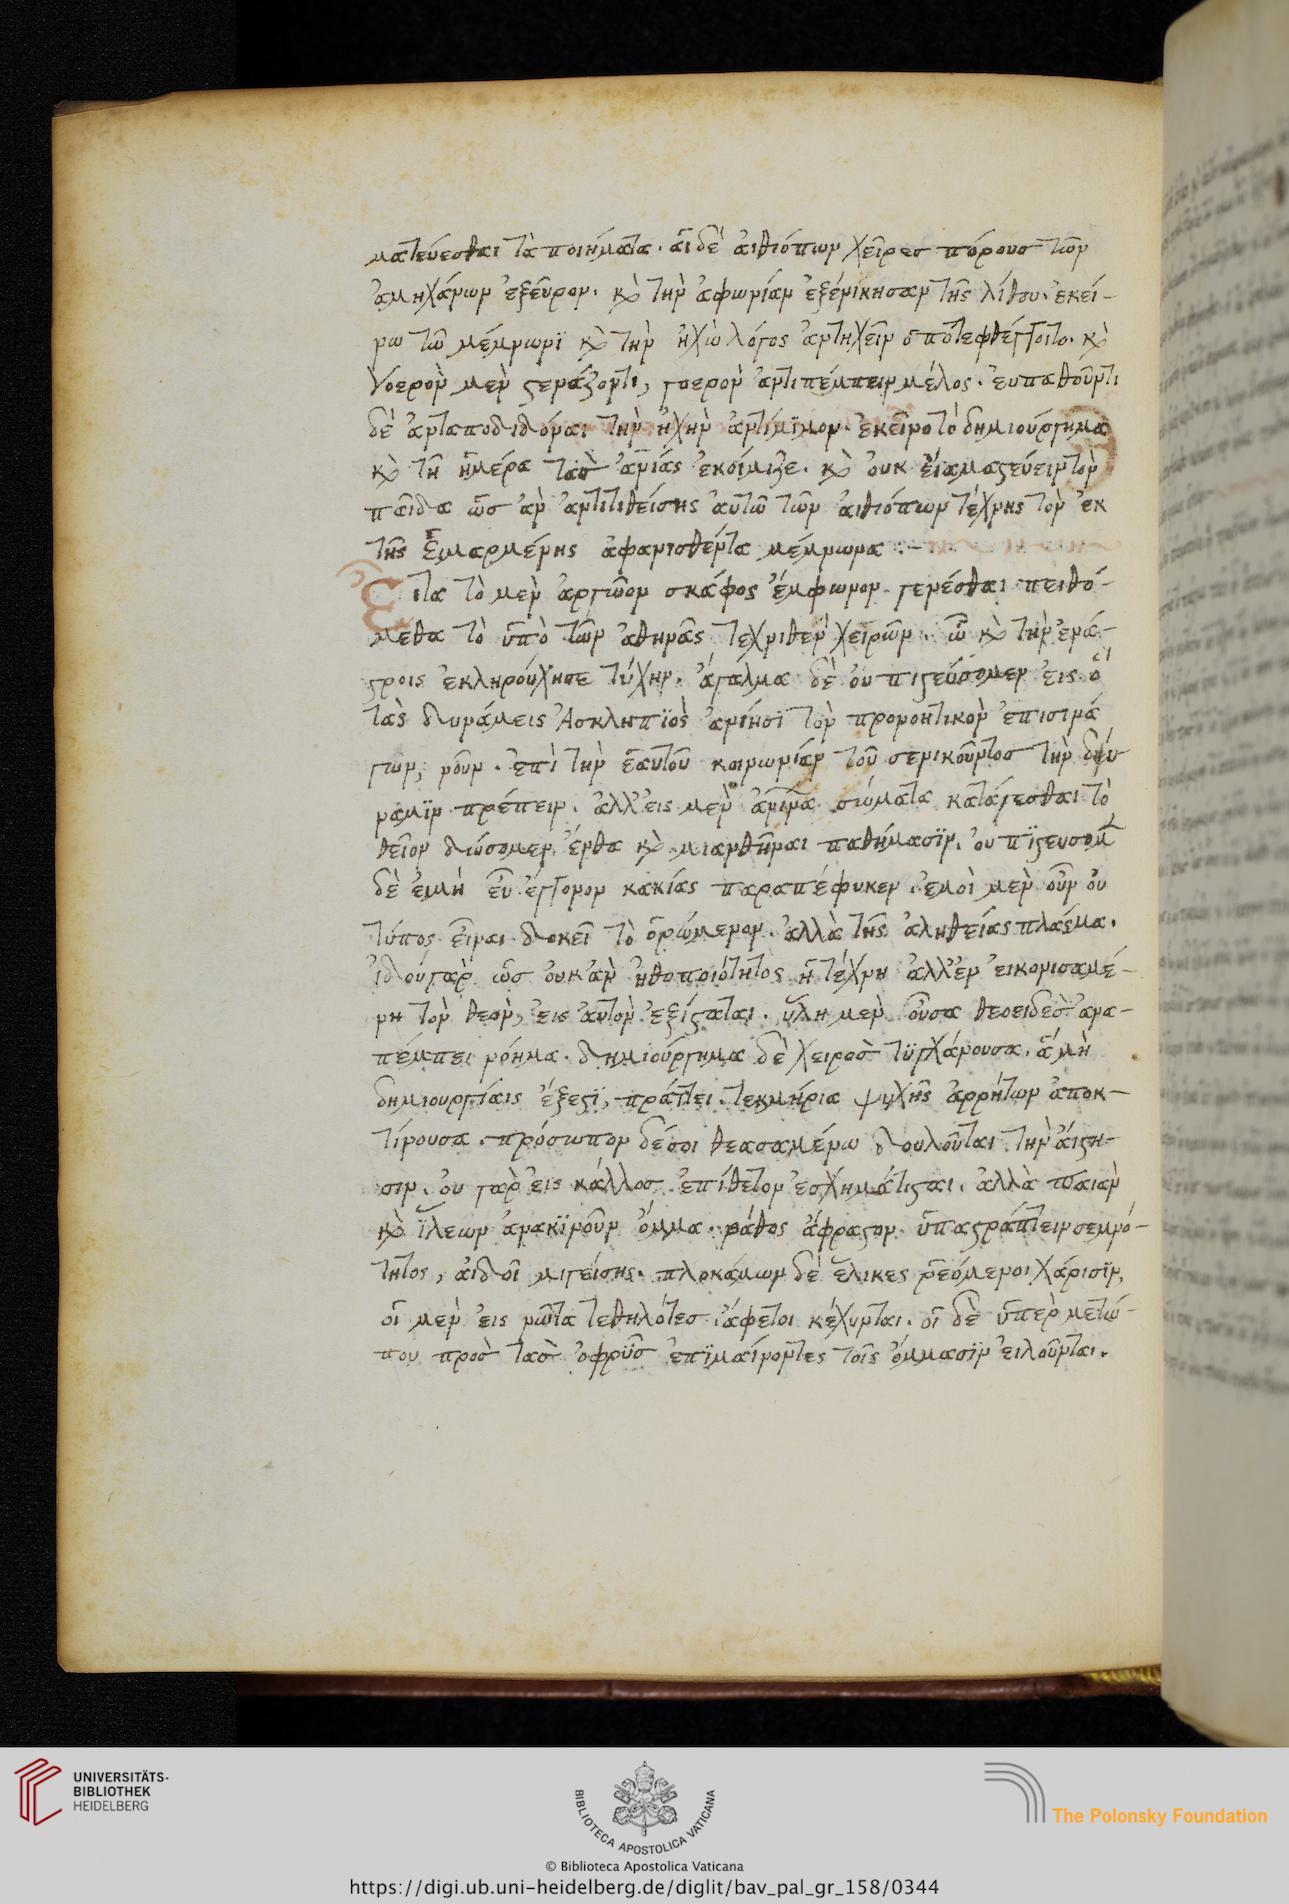 ματεύεσθαι τὰ ποιήματα. αἱ δὲ αἰθιόπων χεῖρες πόρους τῶν
ἀμηχάνων ἐξεῦρον. κὶ τὴν ἀφωνίαν ἐξενίκησαν τῆς λίθου. ἐκεί-
νω τῶ μέμνωνϊ κὶ τὴν ἠχὼ λόγος ἀντηχεῖν ὁπότε φθέγγοιτο. κὶ
γοερὸν μὲν στενάζοντι, γοερὸν ἀντιπέμπειν μέλος. εὐπαθοῦντι
δὲ ἀνταποδιδόναι τὴν ἠχὴν ἀντίμϊμον. ἐκεῖνο τὸ δημιούργημα
κὶ τῆ ἡμέρα τὰσ ἀνίας ἐκοίμιζε. κὶ οὐκ εἴα μαστεύειν τὸν
παῖδα ὡσ ἂν ἀντιτιθείσης αὐτῶ τῶν αἰθιόπων τέχνης τὸν ἐκ
τῆς εἱμαρμένης ἀφανισθέντα μέμνωνα :-
Εἶτα τὸ μὲν ἀργῶον σκάφος ἔμφωνον γενέσθαι πειθό-
μεθα τὸ ὑπὸ τῶν ἀθηνᾶς τεχνιθὲν χειρῶν. ὧ κὶ τὴν ἐν ἄ-
στροις ἐκληρούχησε τύχην. ἄγαλμα δὲ οὐ πιστεύσομεν εἰς ὃ
τὰς δυνάμεις Ἀσκληπϊὸς ἀνίησϊ τὸν προνοητικὸν ἐπισινά
γων, νοῦν. ἐπὶ τὴν ἑαυτοῦ κοινωνίαν τοῦ σενικοῦντοσ τὴν δύ
ναμϊν πρέπειν. ἀλλ' εἰς μὲν ἀνθρώπινα σώματα κατάγεσθαι τὸ
θεῖον δώσομεν. ἔνθα κὶ μιανθῆναι παθήμασϊν. οὐ πϊστευσομεν
δὲ εἰ μὴ εὖ ἔγγονον κακίας παραπέφυκεν. ἐμοὶ μὲν οὖν οὐ
τύπος εἶναι δοκεῖ τὸ ὁρώμενον. ἀλλὰ τῆς ἀληθείας πλάσμα.
ἰδοὺ γὰρ ὡσ οὐκ ἂν ἠθοποιότητος ἡ τέχνη ἀλλ' ἐν εἰκονισαμέ-
νη τὸν θεὸν, εἰς αὐτὸν ἐξίσταται. ὕλη μὲν οὖσα θεοειδὲσ ἀνα-
πέμπει νόημα. δημιούργημα δὲ χειροσ τϋγχάνουσα. ἃ μὴ
δημιουργίαις ἔξεστϊ, πράττει. τεκμήρια ψυχῆς ἀρρήτων ἀποκ-
τίνουσα. πρόσωπον δέ σοι θεασαμένω δουλοῦται τὴν αἴσθη-
σιν. οὐ γαρ εἰς κάλλοσ ἐπίθετον ἐσχημάτισται. ἀλλὰ παιὰν
κὶ ἵλεων ἀνακϊνοῦν ὄμμα. βάθος ἄφραστον ὑπαστράπτειν σεμνό-
τητος, αἰδοῖ μιγείσης. πλοκάμων δὲ ἕλικες ῥεόμενοι χάρισϊν,
οἱ μὲν εἰς νῶτα τεθηλότεσ ἄφετοι κέχυνται. οἱ δὲ ὑπὲρ μετώ-
που προσ τασ ὀφρῦσ ἐπϊμαίνοντες τοῖς ὄμμασϊν εἰλοῦνται.
UNIVERSITÄTS-
BIBLIOTHEK
HEIDELBERG
BIBLIOTECA APOSTOLICA VATICANA
The Polonsky Foundation
© Biblioteca Apostolica Vaticana
https://digi.ub.uni-heidelberg.de/diglit/bav_pal_gr_158/0344